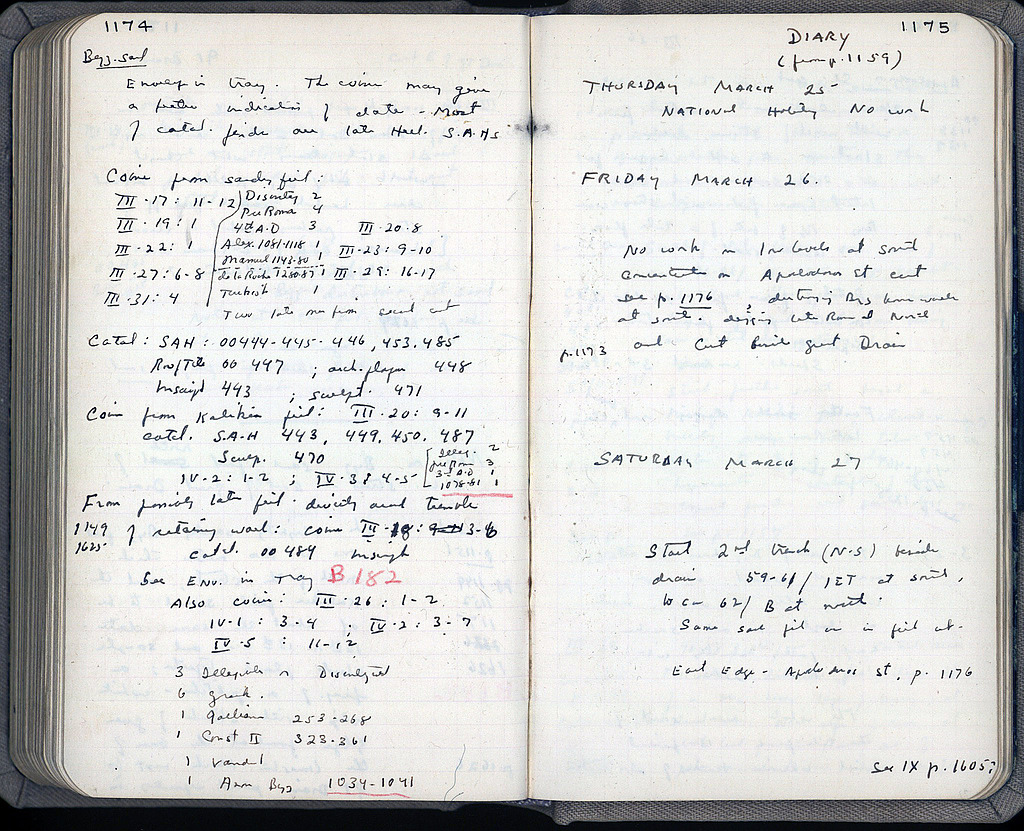 1174
Envelop in tray. The coins may give
a better indication of date. Most
of catal. finds are late Hell. S.A.Hs
Coins from sandy fill:
III·17: 11-12
III·19: 1
III·22: 1
III·27: 6-8
III·31: 4
Disinteg 2
Pre Roma 4
4th A.D 3
Alex. 1081-1118 1
Manuel 1143-80 1
de la Roche 1280-87 1
Turkish 1
III·20·8
III·23: 9-10
III·29: 16-17
Two late ones from second cut
Catal: SAH: 00444-445-446, 453, 485
Roof Tile 00 447 ; arch. 448
Inscript 443 ; Sculpt. 471
Coins from fill: III·20: 9-11
catal. S.A.H 443, 449, 450, 487
Sculp. 470
IV-2: 1-2 ; IV-3: 4-5
Illeg. 2
pre Rom 3
3rd A.D 1
1078-81 1
From possibly late fill directly
1149
1625
of retaining wall: coins III 3-6
catal. 00 484 Inscript
See Env. in Tray B 182
Also coins: III·26: 1-2
IV-1: 3-4 ; IV-2: 3-7
IV-5: 11-12
3 Illegible or Disintegrated
6 Greek.
1 Gallienus 253-268
1 Const II 323-361
1 Vandal
1 Anon Byz 1034-1041
1175
DIARY
(from p. 1159)
THURSDAY MARCH 25
NATIONAL Holiday No work
FRIDAY MARCH 26.
No work on levels at south
Concentrate on Apolodorus St cut
see p. 1176 ; destroying
at south. digging late Roman
p. 1173 and cut beside great Drain
SATURDAY MARCH 27
Start 2nd trench (N-S) beside
drain 59-61/ IET at south,
62/ B at north.
Same fill as in first cut.
East Edge - Apolodorus St, p. 1176
See IX p. 1605